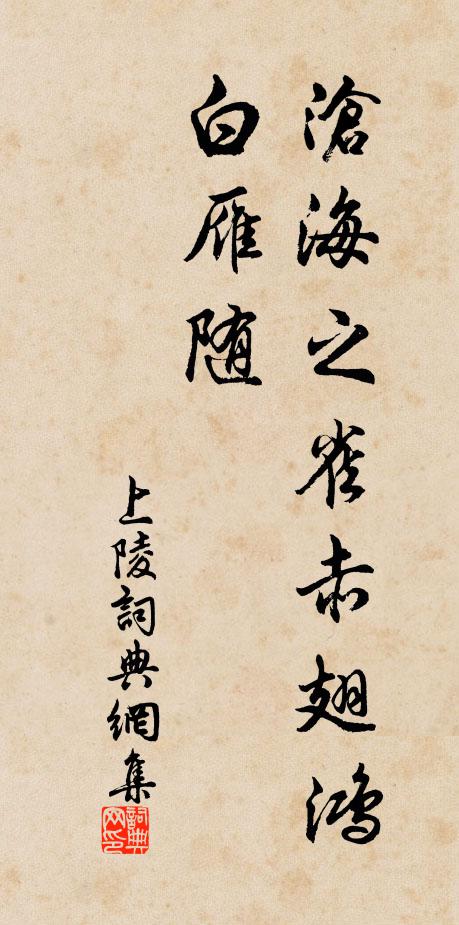 滄海之雀赤翅鴻
白雁随
上陵詞典網集
詞典网印